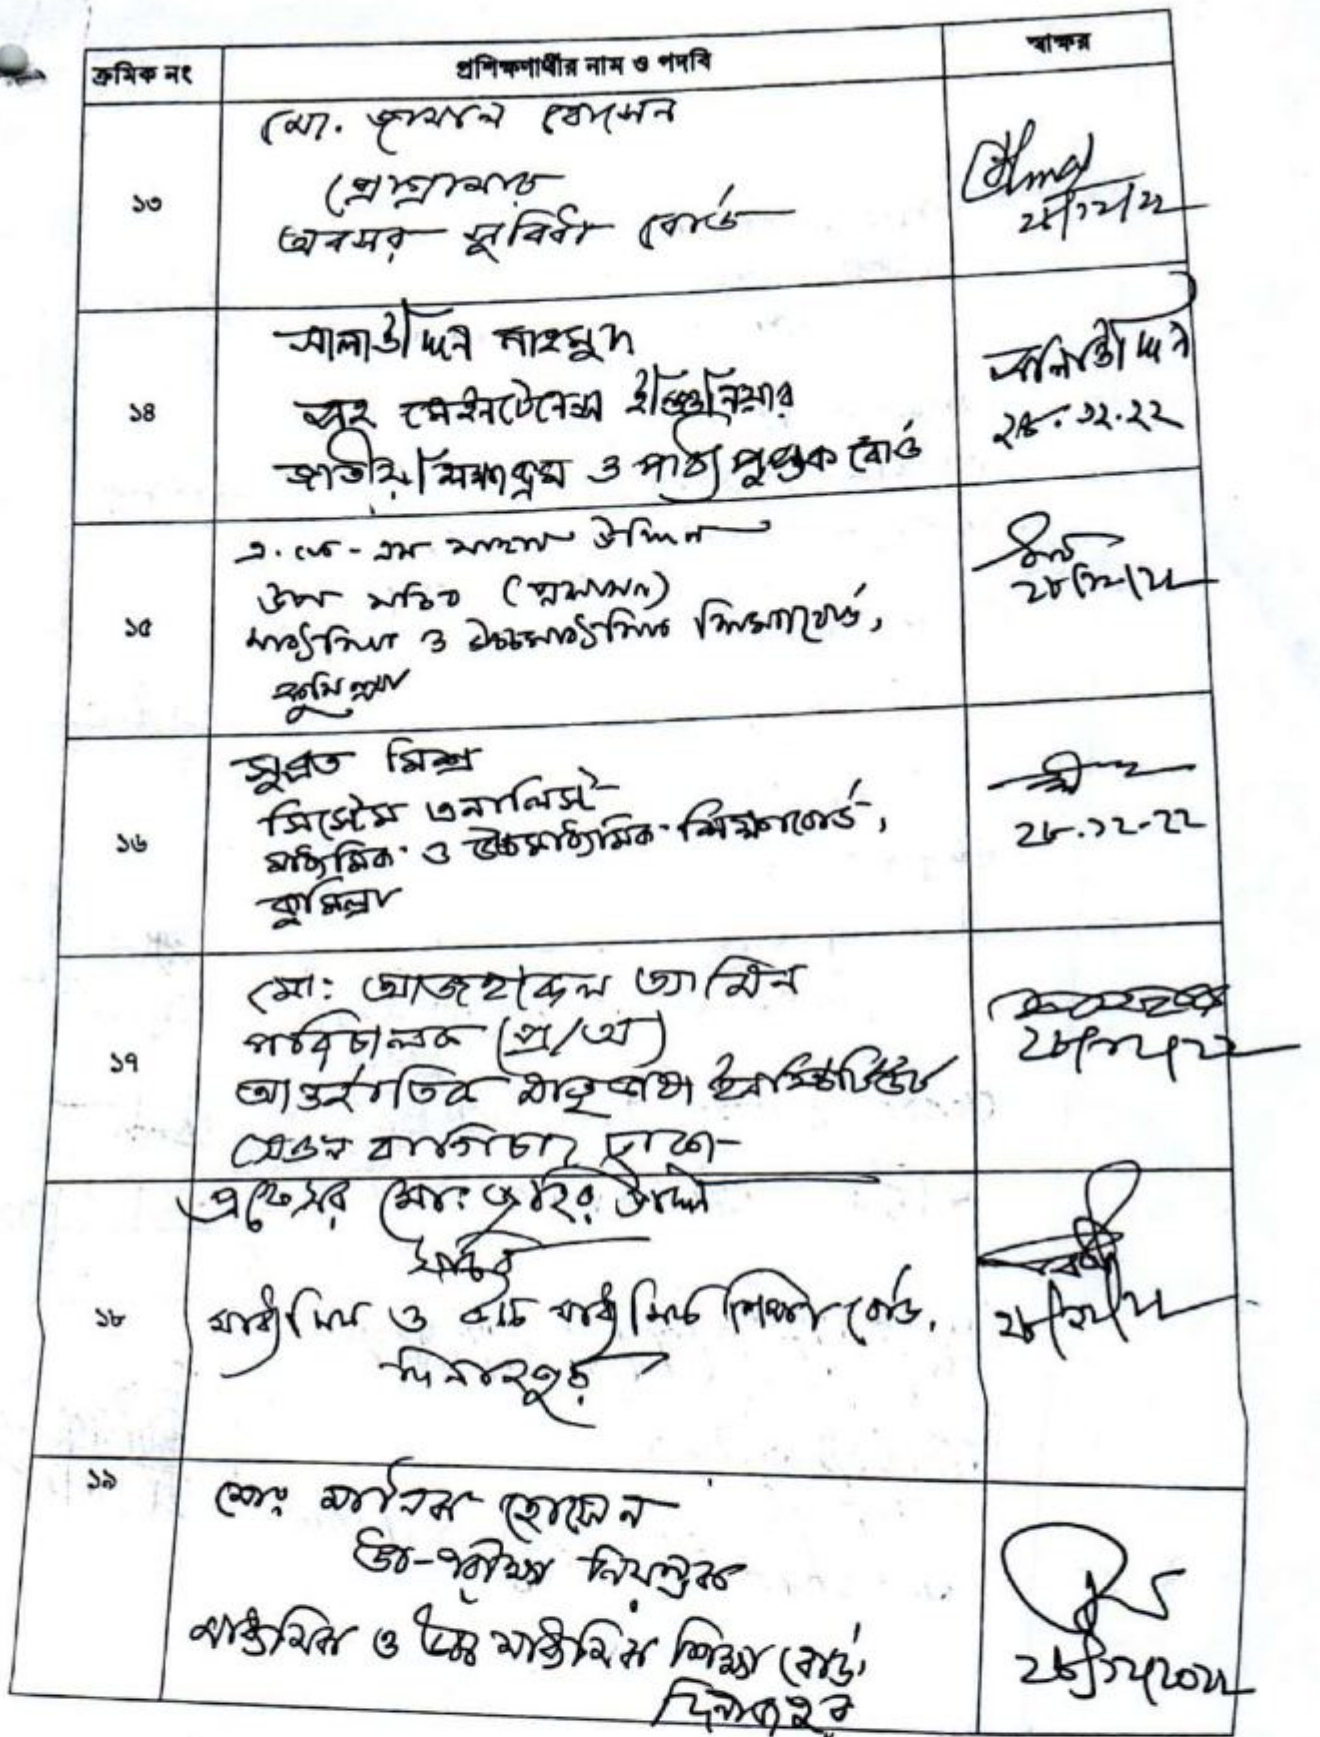 ক্রমিক নং প্রশিক্ষণার্থীর নাম ও পদবি স্বাক্ষর
১৩
মো. জামাল হোসেন
প্রোগ্রামার
অবসর সুবিধা বোর্ড
২৮/১২/২২
১৪
সালাউদ্দিন মাহমুদ
সহ মেইনটেনেন্স ইঞ্জিনিয়ার
জাতীয় শিক্ষাক্রম ও পাঠ্য পুস্তক বোর্ড
সালাউদ্দিন
২৮.১২.২২
১৫
উদ্দিন
উপ সচিব (প্রশাসন)
মাধ্যমিক ও উচ্চমাধ্যমিক শিক্ষাবোর্ড,
কুমিল্লা
২৮/১২/২২
১৬
সুব্রত মিশ্র
সিস্টেম এনালিস্ট
মাধ্যমিক ও উচ্চমাধ্যমিক শিক্ষাবোর্ড,
কুমিল্লা
২৮.১২.২২
১৭
মো: আজহারুল আমিন
পরিচালক (প্র/অ)
আন্তর্জাতিক মাতৃভাষা ইনস্টিটিউট
সেগুন বাগিচা, ঢাকা
২৮/১২/২২
১৮
প্রফেসর মো: জহির উদ্দিন
সচিব
মাধ্যমিক ও উচ্চ মাধ্যমিক শিক্ষা বোর্ড,
দিনাজপুর
২৮/১২/২২
১৯
মোঃ মানিক হোসেন
উপ-পরীক্ষা নিয়ন্ত্রক
মাধ্যমিক ও উচ্চ মাধ্যমিক শিক্ষা বোর্ড,
দিনাজপুর
২৮/১২/২০২২